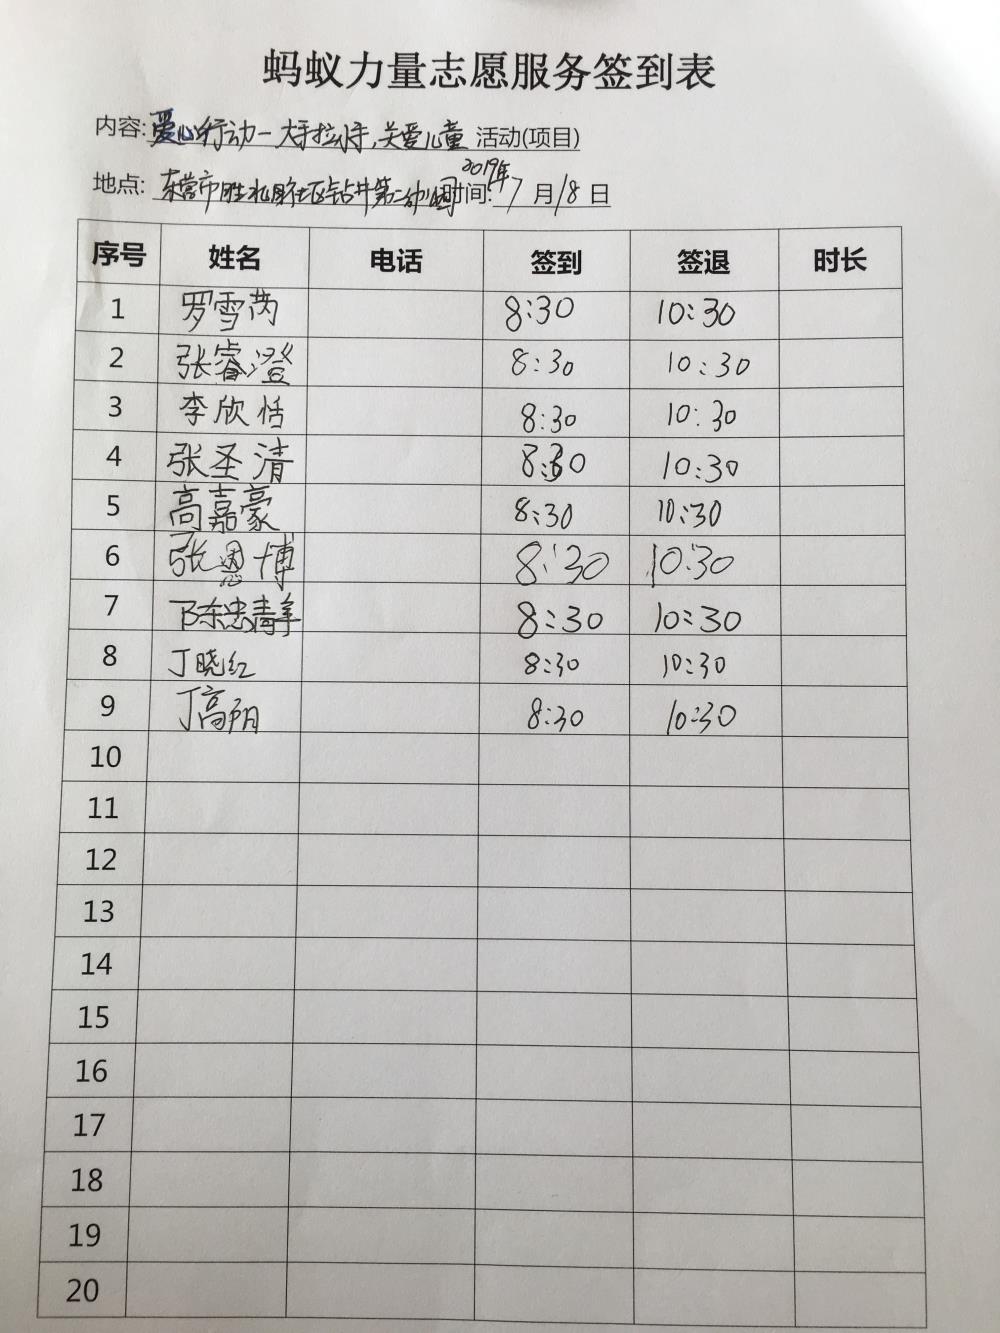 蚂蚁力量志愿服务签到表
内容:爱心行动一大手拉小手,关爱儿童 活动(项目)
地点: 东营市胜利社区钻井第二幼儿园 时间: 2019年7月18日
序号 姓名 电话 签到 签退 时长
1 罗雪芮 8:30 10:30
2 张睿澄 8:30 10:30
3 李欣恬 8:30 10:30
4 张圣清 8:30 10:30
5 高嘉豪 8:30 10:30
6 张恩博 8:30 10:30
7 陈忠清 8:30 10:30
8 丁晓红 8:30 10:30
9 丁高 8:30 10:30
10
11
12
13
14
15
16
17
18
19
20